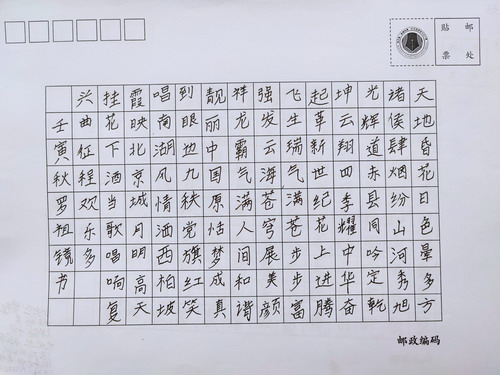 贴邮
票处
天地昏花日色晕多方
诸侯肆烟纷山河秀旭
光辉道赤县同吟定乾
坤云翔四季耀中华奋
起革新世纪花上进腾
飞生瑞气满苍步步富
强发云海苍穹展美颜
祥龙霸气满人间和谐
靓丽中国原怙梦成真
到眼边九秩党旗红笑
唱南湖风情洒西柏坡
霞映北京城月明高天
挂花下酒当歌唱响复
兴曲征程欢乐多
壬寅秋罗祖镜节
邮政编码